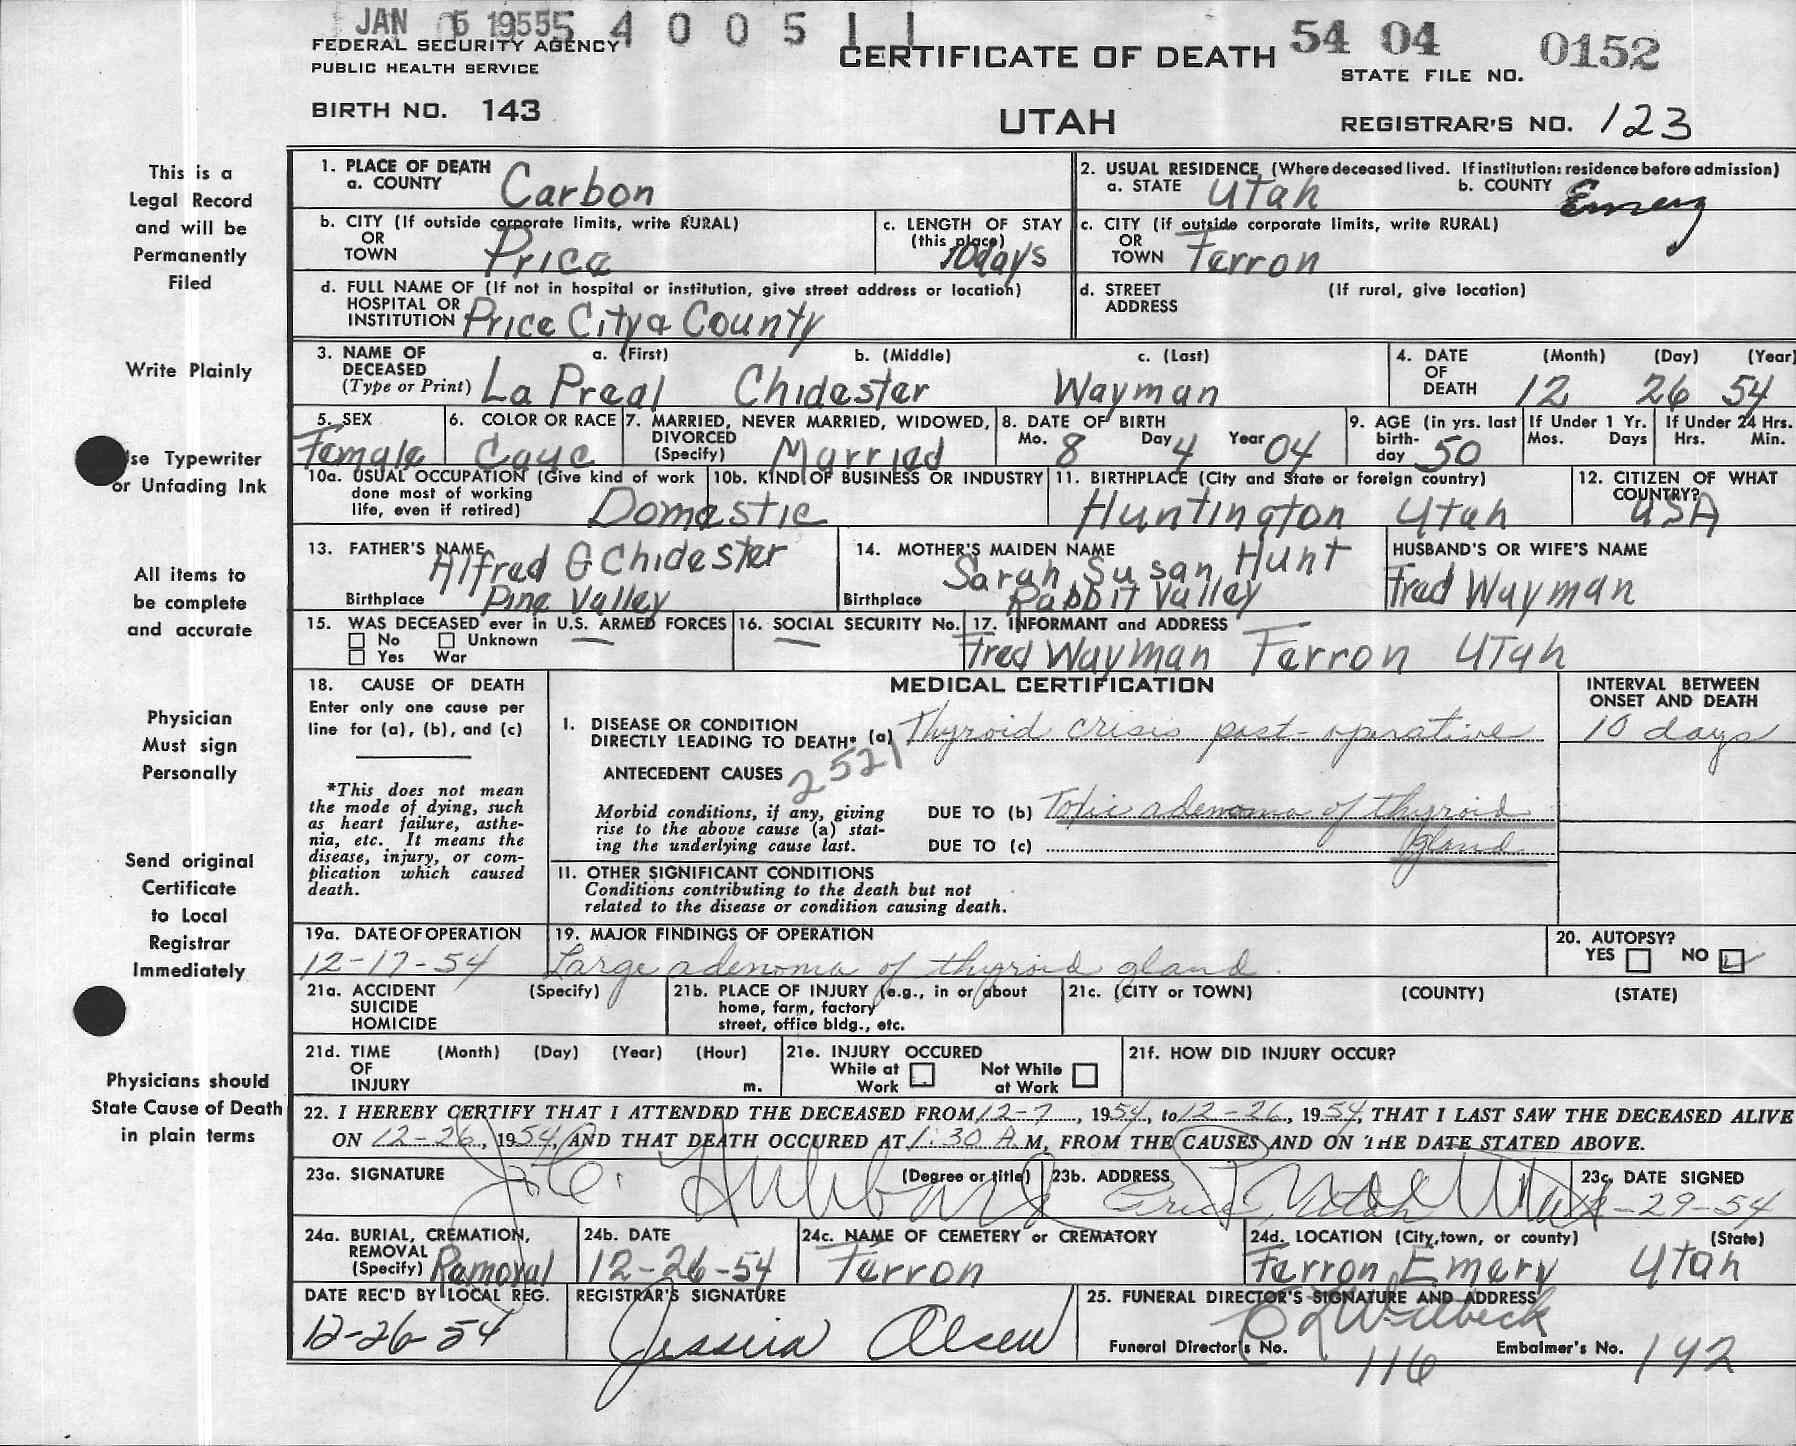 JAN 5 1955 5 4 0 0 5 1 1
FEDERAL SECURITY AGENCY
PUBLIC HEALTH SERVICE
CERTIFICATE OF DEATH
54 04 0152
STATE FILE NO.
BIRTH NO. 143
UTAH
REGISTRAR'S NO. 123
This is a
Legal Record
and will be
Permanently
Filed
Write Plainly
se Typewriter
or Unfading Ink
All items to
be complete
and accurate
Physician
Must sign
Personally
Send original
Certificate
to Local
Registrar
Immediately
Physicians should
State Cause of Death
in plain terms
1. PLACE OF DEATH
a. COUNTY Carbon
2. USUAL RESIDENCE (Where deceased lived. If institution: residence before admission)
a. STATE Utah b. COUNTY Emery
b. CITY (If outside corporate limits, write RURAL)
OR
TOWN Price
c. LENGTH OF STAY
(this place)
10 days
c. CITY (if outside corporate limits, write RURAL)
OR
TOWN Ferron
d. FULL NAME OF (If not in hospital or institution, give street address or location)
HOSPITAL OR
INSTITUTION Price City & County
d. STREET (If rural, give location)
ADDRESS
3. NAME OF a. (First) b. (Middle) c. (Last)
DECEASED
(Type or Print) La Preal Chidester Wayman
4. DATE (Month) (Day) (Year)
OF
DEATH 12 26 54
5. SEX
Female
6. COLOR OR RACE
Cauc
7. MARRIED, NEVER MARRIED, WIDOWED,
DIVORCED
(Specify) Married
8. DATE OF BIRTH
Mo. 8 Day 4 Year 04
9. AGE (in yrs. last
birth-
day 50
If Under 1 Yr.
Mos. Days
If Under 24 Hrs.
Hrs. Min.
10a. USUAL OCCUPATION (Give kind of work
done most of working
life, even if retired) Domestic
10b. KIND OF BUSINESS OR INDUSTRY
11. BIRTHPLACE (City and State or foreign country)
Huntington Utah
12. CITIZEN OF WHAT
COUNTRY?
USA
13. FATHER'S NAME
Alfred G Chidester
Birthplace Pine Valley
14. MOTHER'S MAIDEN NAME
Sarah Susan Hunt
Birthplace Rabbit Valley
HUSBAND'S OR WIFE'S NAME
Fred Wayman
15. WAS DECEASED ever in U.S. ARMED FORCES
No Unknown —
Yes War
16. SOCIAL SECURITY No.
—
17. INFORMANT and ADDRESS
Fred Wayman Ferron Utah
18. CAUSE OF DEATH
Enter only one cause per
line for (a), (b), and (c)
*This does not mean
the mode of dying, such
as heart failure, asthe-
nia, etc. It means the
disease, injury, or com-
plication which caused
death.
MEDICAL CERTIFICATION
INTERVAL BETWEEN
ONSET AND DEATH
I. DISEASE OR CONDITION
DIRECTLY LEADING TO DEATH* (a) Thyroid crisis post-operative 10 days
ANTECEDENT CAUSES 2521
Morbid conditions, if any, giving
rise to the above cause (a) stat-
ing the underlying cause last.
DUE TO (b) Toxic adenoma of thyroid
DUE TO (c) gland
II. OTHER SIGNIFICANT CONDITIONS
Conditions contributing to the death but not
related to the disease or condition causing death.
19a. DATE OF OPERATION
12-17-54
19. MAJOR FINDINGS OF OPERATION
Large adenoma of thyroid gland.
20. AUTOPSY?
YES NO
21a. ACCIDENT (Specify)
SUICIDE
HOMICIDE
21b. PLACE OF INJURY (e.g., in or about
home, farm, factory
street, office bldg., etc.
21c. (CITY or TOWN) (COUNTY) (STATE)
21d. TIME (Month) (Day) (Year) (Hour)
OF
INJURY m.
21e. INJURY OCCURED
While at Not While
Work at Work
21f. HOW DID INJURY OCCUR?
22. I HEREBY CERTIFY THAT I ATTENDED THE DECEASED FROM 12-7, 1954, to 12-26, 1954, THAT I LAST SAW THE DECEASED ALIVE
ON 12-26, 1954, AND THAT DEATH OCCURED AT 1:30 A.M, FROM THE CAUSES AND ON THE DATE STATED ABOVE.
23a. SIGNATURE (Degree or title)
Hubbard
23b. ADDRESS
Price, Utah
23c. DATE SIGNED
12-29-54
24a. BURIAL, CREMATION,
REMOVAL
(Specify) Removal
24b. DATE
12-26-54
24c. NAME OF CEMETERY or CREMATORY
Ferron
24d. LOCATION (City, town, or county) (State)
Ferron Emery Utah
DATE REC'D BY LOCAL REG.
12-26-54
REGISTRAR'S SIGNATURE
Jessica Olsen
25. FUNERAL DIRECTOR'S SIGNATURE AND ADDRESS
Funeral Director's No. 116
Embalmer's No. 142